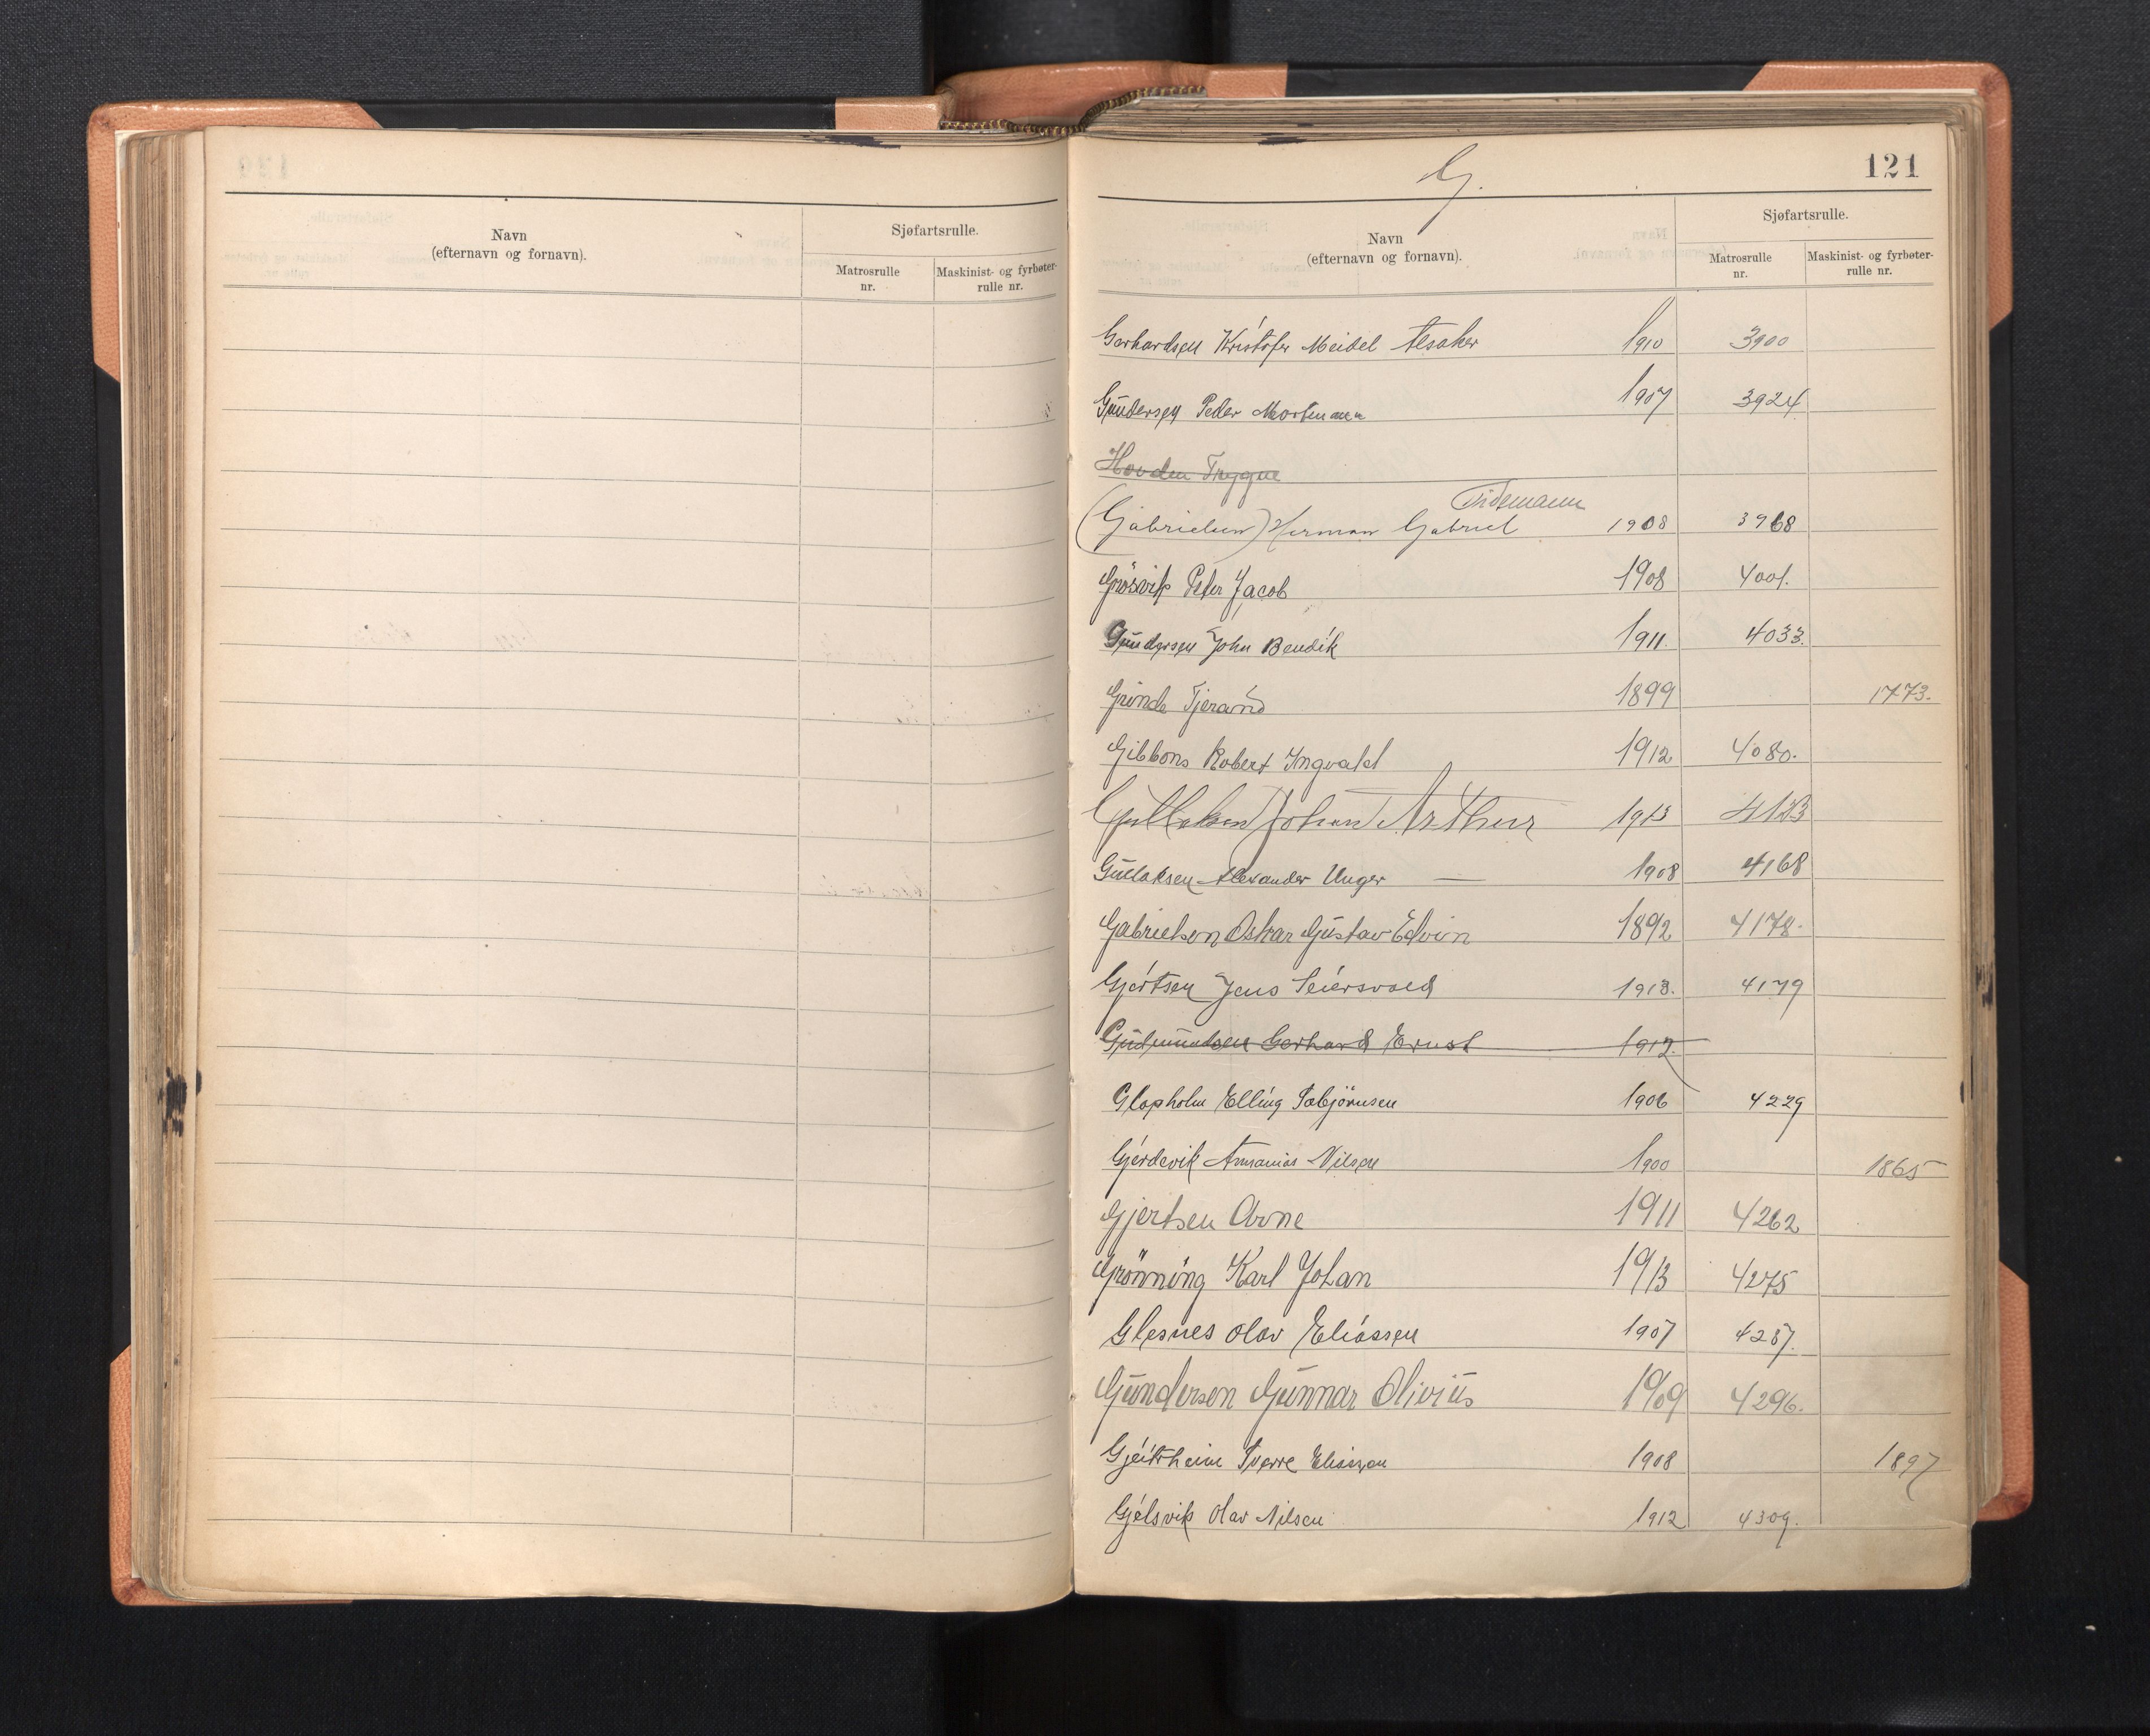 Navn
(efternavn og fornavn).
Sjøfartsrulle.
Matrosrulle
nr.
Maskinist- og fyrbøter-
rulle nr.
G.
121
Navn
(efternavn og fornavn).
Sjøfartsrulle.
Matrosrulle
nr.
Maskinist- og fyrbøter-
rulle nr.
Gerhardsen Kristofer Meidel Alsaker 1910 3900
Gundersen Peder Mortmann 1907 3924
Hovden Trygve
Tidemann
(Gabrielsen) Herman Gabriel 1908 3968
Grøsvik Peter Jacob 1908 4001.
Gundersen John Bendik 1911. 4033.
Grinde Tjerand 1899 1773.
Gibbons Robert Ingvald 1912 4080.
Gullaksen Johan Arthur 1913 4123
Gullaksen Alexander Unger — 1908 4168
Gabrielsen Oskar Gustav Edvin 1892 4178.
Gjertsen Jens Seiersvold 1913. 4179
Gudmundsen Gerhard Ernst 1912.
Glopholm Elling Torbjørnsen 1906 4229
Gjerdevik Ananias Nilsen 1900 1865
Gjertsen Arne 1911 4262
Grønning Karl Johan 1913 4275
Glesnes Olav Eliassen 1907 4287.
Gundersen Gunnar Olivius 1909 4296.
Gjeitrheim Sverre Eliassen 1908 1897
Gjelsvik Olav Nilsen 1912 4309.